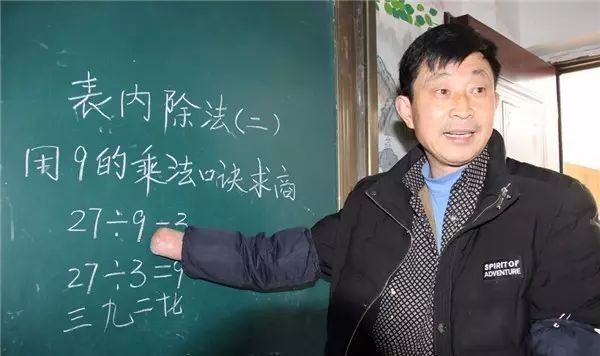 表内除法(二)
用9的乘法口诀求商
27÷9=3
27÷3=9
三九二十七
SPIRIT OF
ADVENTURE